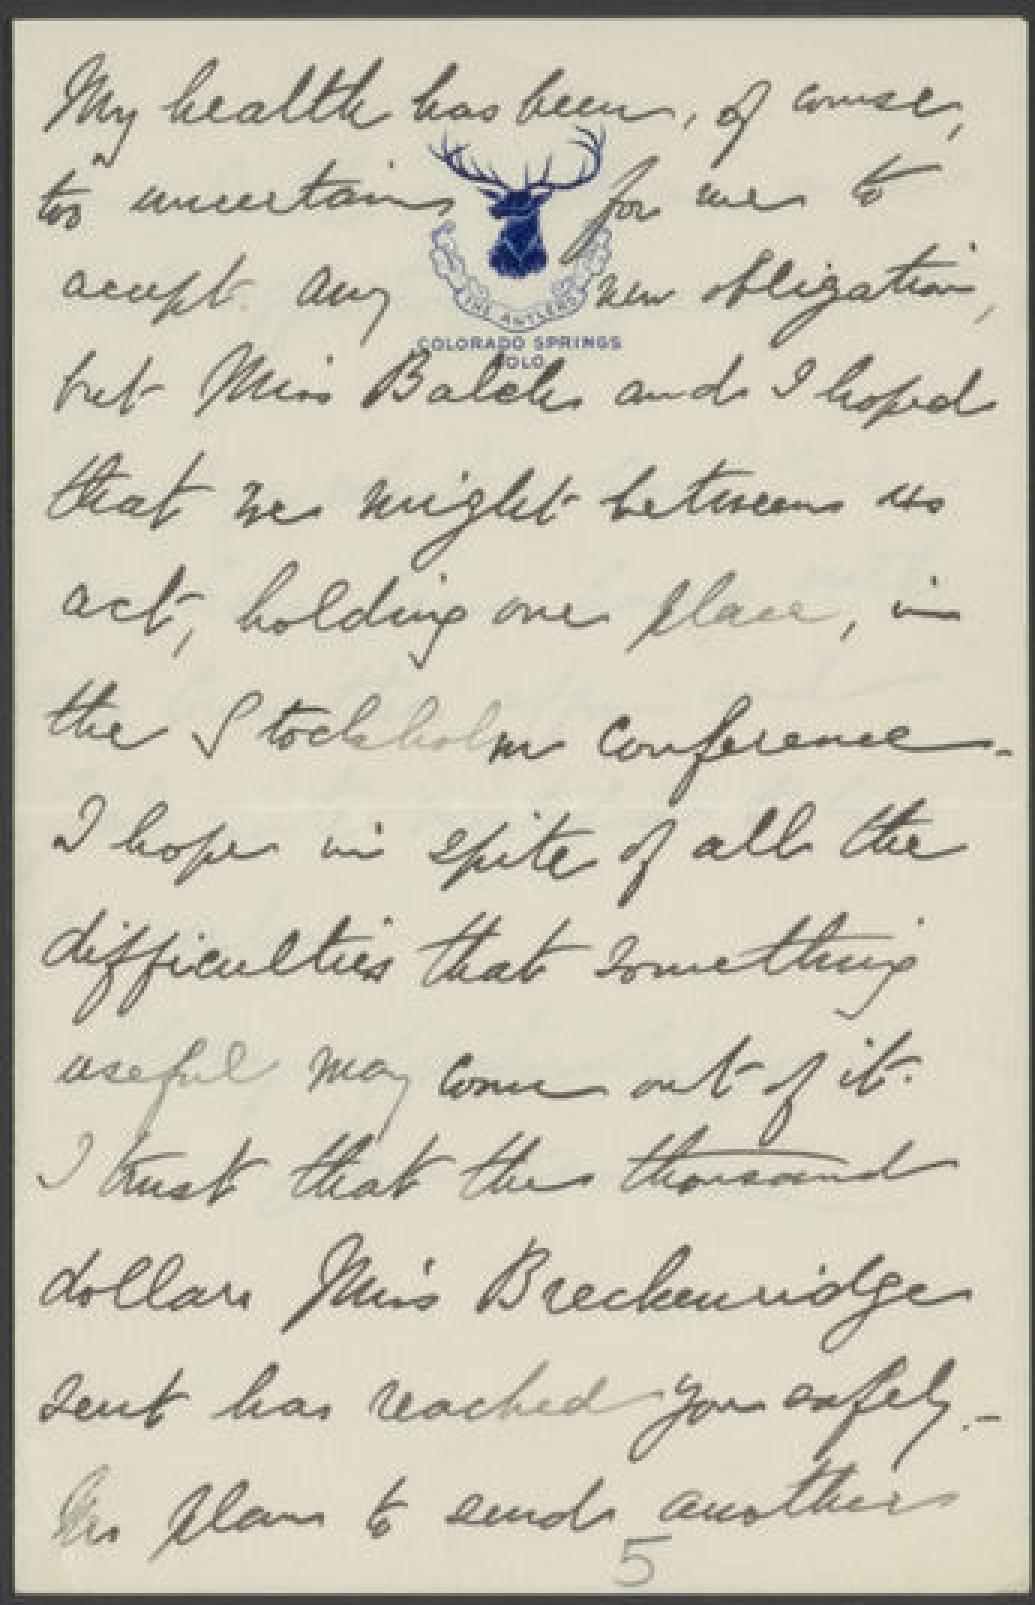 My health has been, of course,
too uncertain for me to
accept any new obligation,
THE ANTLERS
COLORADO SPRINGS
COLO.
but Miss Balch and I hoped
that we might between us
act, holding one place, in
the Stockholm Conference -
I hope in spite of all the
difficulties that something
useful may come out of it.
I trust that the thousand
dollars Miss Breckenridge
sent has reached you safely. -
plan to send another
5